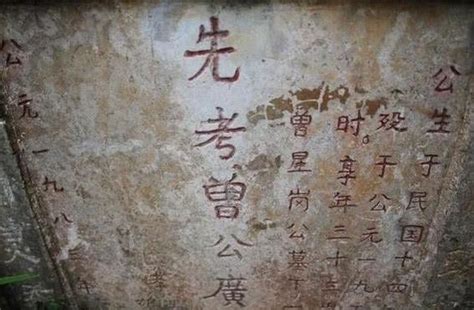 公生于民国十四
殁于公元一九
时。享年三十三
曾星岗公墓丁
先考曾公廣
公元一九八三年